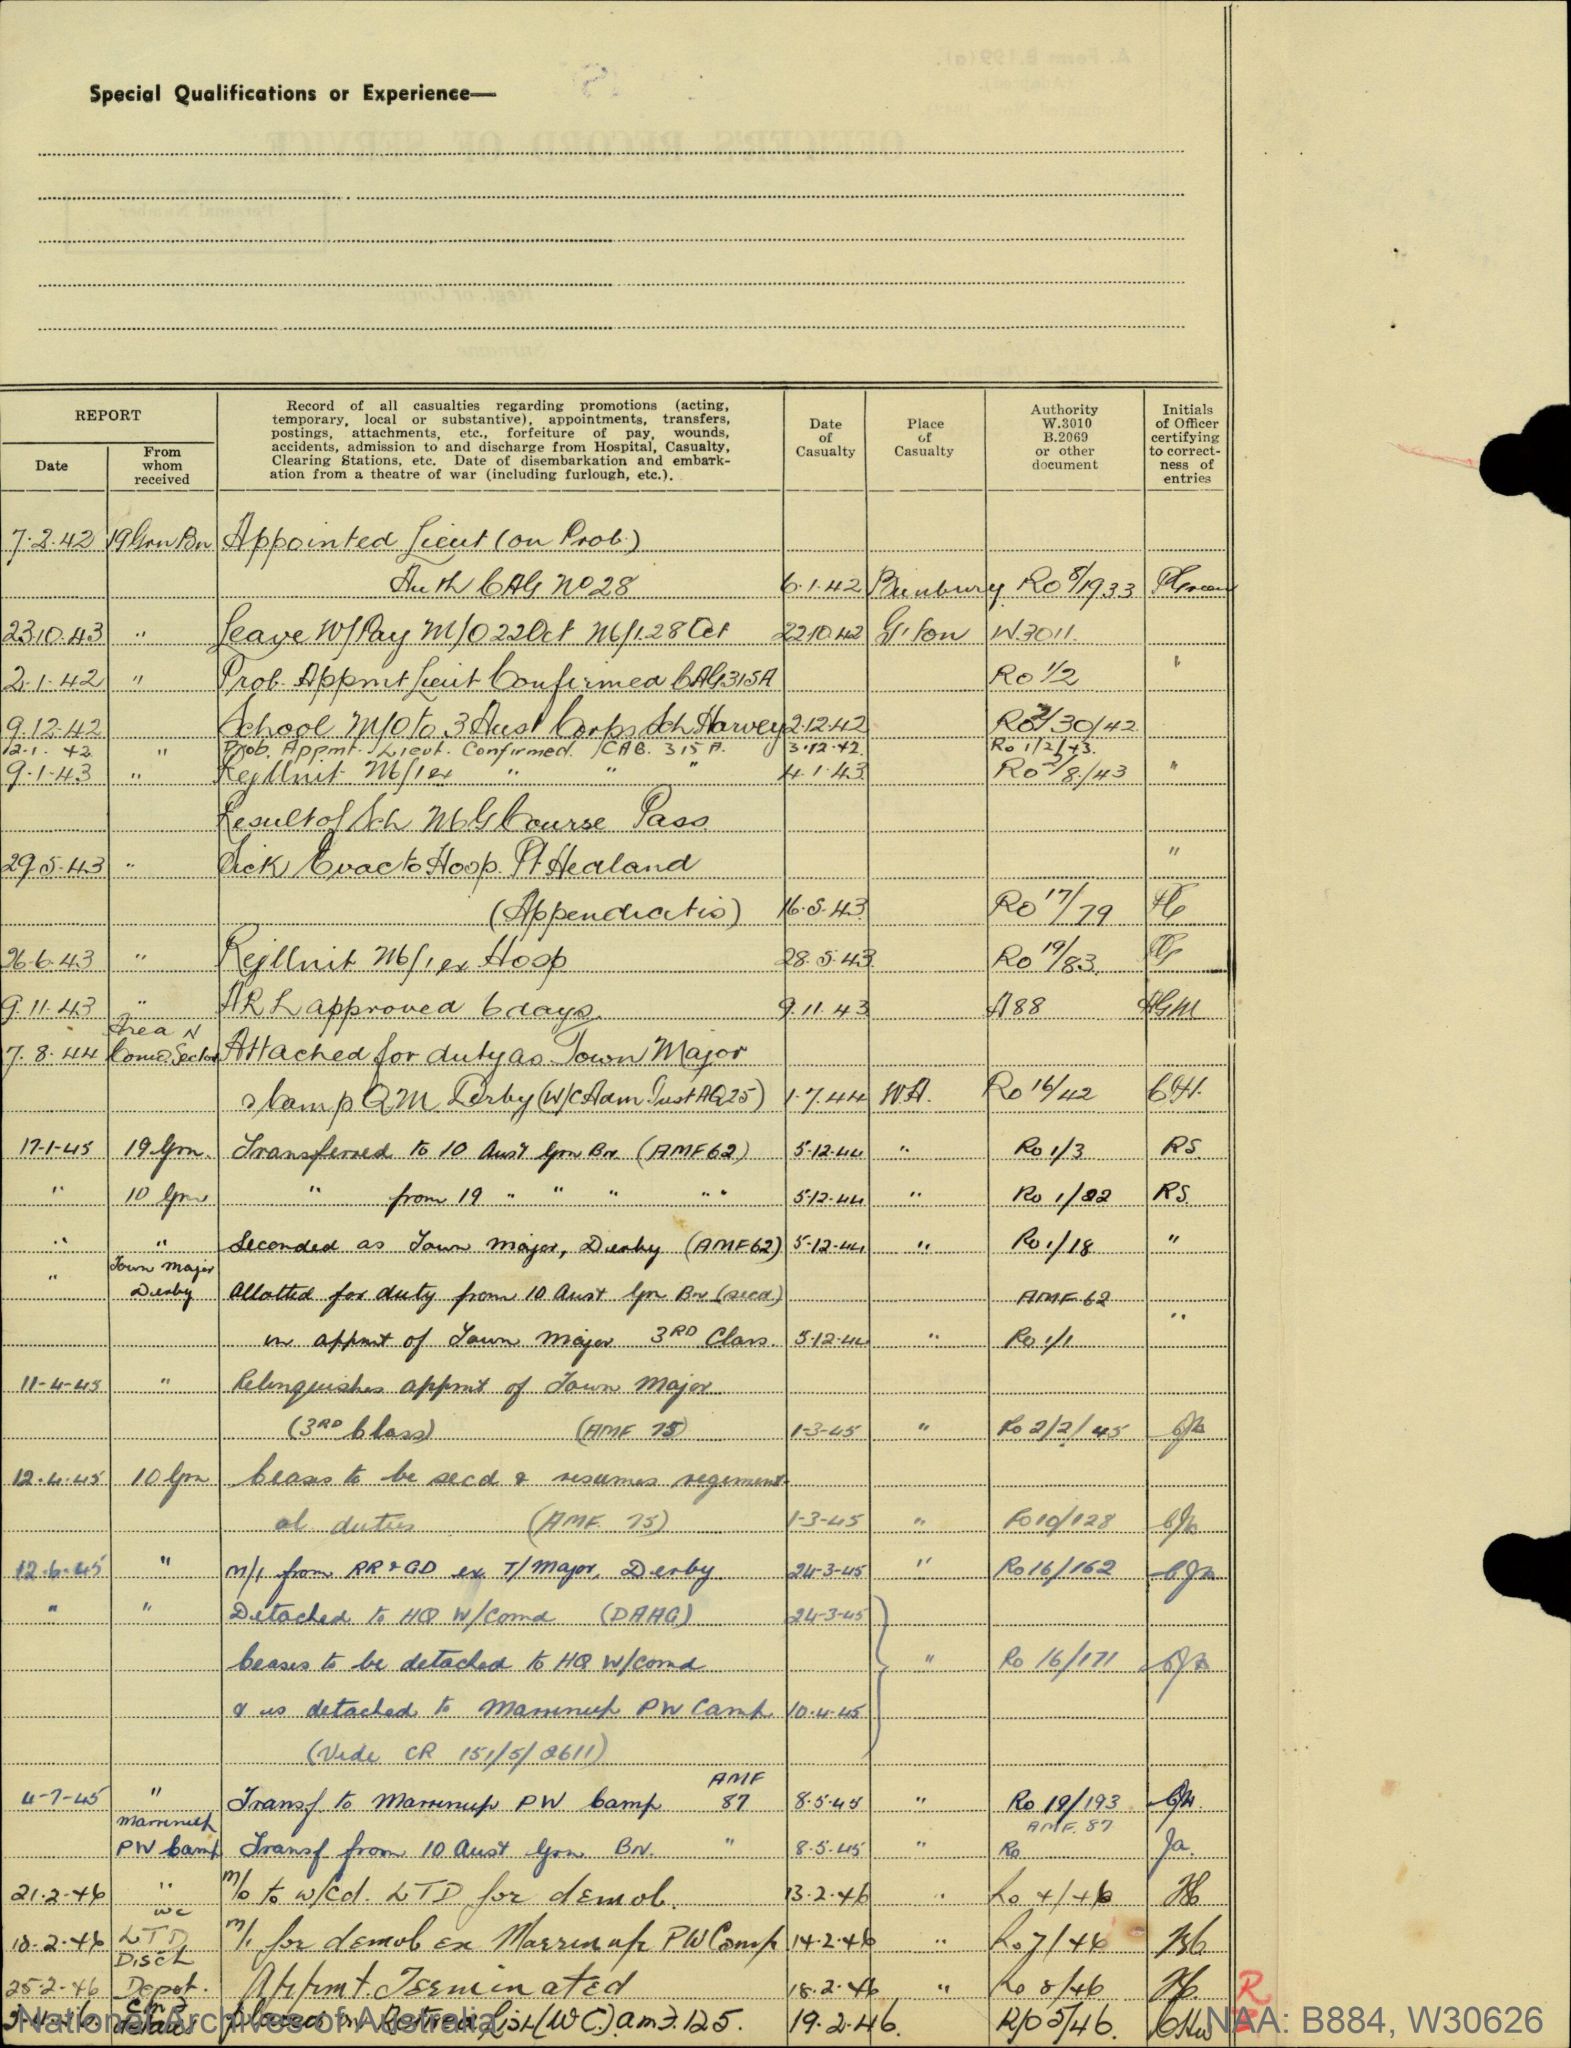 Special Qualifications or Experience—
REPORT
Date
From whom received
Record of all casualties regarding promotions (acting,
temporary, local or substantive), appointments, transfers,
postings, attachments, etc., forfeiture of pay, wounds,
accidents, admission to and discharge from Hospital, Casualty,
Clearing Stations, etc. Date of disembarkation and embark-
ation from a theatre of war (including furlough, etc.).
Date of Casualty
Place of Casualty
Authority W.3010 B.2069 or other document
Initials of Officer certifying to correct-ness of entries
7.2.42 19 Grn Bn Appointed Lieut (on Prob.)
Auth CAG No 28 6.1.42 Bunbury Ro 8/1933
23.10.43 " Leave W/Pay M/O 22 Oct M/I 28 Oct 22.10.42 G'ton W.3011
2.1.42 " Prob. Appmt Lieut Confirmed CAG 315A Ro 1/2 "
9.12.42 School M/O to 3 Aust Corps Sch Harvey 2.12.42 Ro 2/30/42
12.1.42 " Prob. Appmt. Lieut. Confirmed. CAG. 315 A. 3.12.42. Ro 1/2/43.
9.1.43 " Rej Unit M/I ex " " " 4.1.43 Ro 2/8/43 "
Result of Sch MG Course Pass
29.5.43 " Sick Evac to Hosp. Pt Hedland "
(Appendicitis) 16.5.43 Ro 17/79
26.6.43 " Rej Unit M/I ex Hosp 28.5.43 Ro 19/83
9.11.43 " ARL approved 6 days 9.11.43 A88 AGM
Area N
7.8.44 Comd Sector Attached for duty as Town Major
& Camp QM. Derby (W/C Adm Inst AQ25) 1.7.44 WA. Ro 16/42 CH.
17-1-45 19 Grn. Transferred to 10 Aust Grn Bn (AMF 62) 5-12-44 " Ro 1/3 RS.
" 10 Grn " from 19 " " " " " 5-12-44 " Ro 1/22 RS.
" " Seconded as Town Major, Derby (AMF 62) 5-12-44 " Ro 1/18 "
Town Major
" Derby Allotted for duty from 10 Aust Grn Bn (secd) AMF 62
in appmt of Town Major 3RD Class. 5-12-44 " Ro 1/1 "
11-4-45 " Relinquishes appmt of Town Major
(3RD Class) (AMF 75) 1-3-45 " Ro 2/2/45
12.4.45 10 Grn Ceases to be secd & resumes regiment-
al duties (AMF 75) 1-3-45 " Ro 10/128
12.6.45 " M/I from RR & GD ex T/Major, Derby 24-3-45 " Ro 16/162
" " Detached to HQ W/Comd (DAAG) 24-3-45
Ceases to be detached to HQ W/Comd " Ro 16/171
& is detached to Marrinup PW Camp 10.4.45
(Vide CR 151/5/2611)
AMF
4-7-45 " Transf to Marrinup PW Camp 87 8.5.45 " Ro 19/193
Marrinup AMF. 87
PW Camp Transf from 10 Aust Grn Bn. " 8.5.45 " Ro Ja.
21.2.46 " M/O to W/Cd. LTD for demob. 13.2.46 " Ro 4/46
WC
18.2.46 LTD M/I for demob ex Marrinup PW Camp 14.2.46 " Ro 7/46
Disch
25.2.46 Depot. Appmt Terminated 18.2.46 " Ro 8/46
details placed on Retired List (WC) AMF 125. 19.2.46. R/O 5/46.
R
National Archives of Australia
NAA: B884, W30626